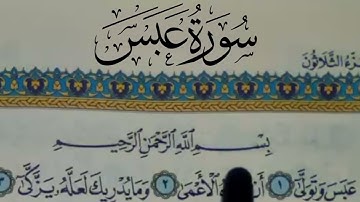 سُورَةُ عَبَسَ
الجزء الثلاثون
بِسْمِ اللَّهِ الرَّحْمَٰنِ الرَّحِيمِ
عَبَسَ وَتَوَلَّىٰ ١ أَن الْأَعْمَىٰ ٢ وَمَا يُدْرِيكَ لَعَلَّهُ يَزَّكَّىٰ ٣